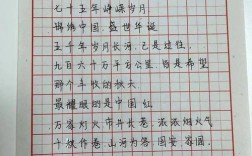 七十五年峥嵘岁月
锦绣中国 盛世华诞
五千年岁月长河 已是过往
九百六十万平方公里 皆是希望
那个丰收的秋天
最耀眼的是中国红
万家灯火市井长巷 浓浓烟火气
千秋作卷 山河为答 国安 家圆